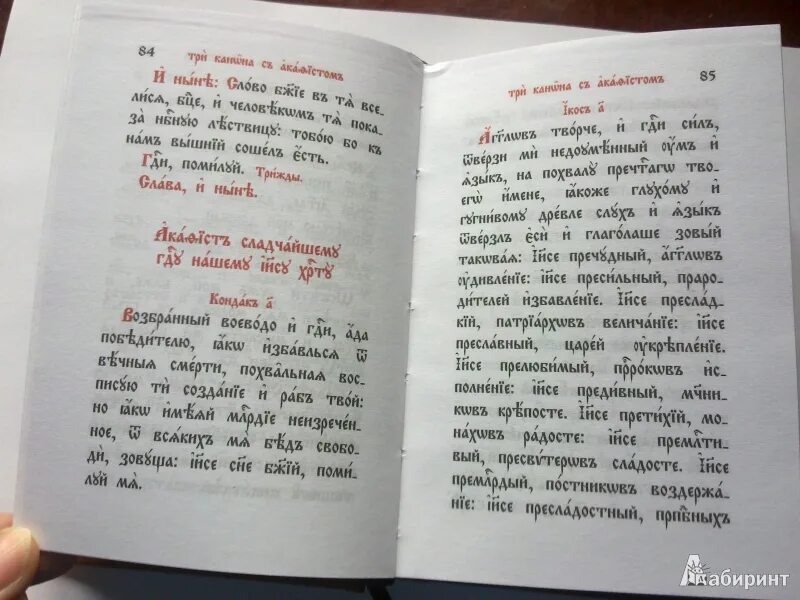 84
три̑ канѡ́на съ а҆ка́ѳїстомъ
И҆ ны́нѣ: Сло́во бж҃їе въ тѧ̀ все-
ли́сѧ, бц҃е, и҆ человѣ́кѡмъ тѧ̀ пока-
за̀ нбⷭ҇ную лѣ́ствицу: тобо́ю бо къ
на́мъ вы́шнїй соше́лъ є҆́сть.
Гдⷭ҇и, поми́луй. Три́жды.
Сла́ва, и҆ ны́нѣ.
А҆ка́ѳїстъ сладча́йшему
гдⷭ҇у на́шему і҆и҃су хрⷭ҇ту̀
Конда́къ а҃
Возбра́нный воево́до и҆ гдⷭ҇и, а҆́да
побѣди́телю, ꙗ҆́кѡ и҆зба́вльсѧ ѿ
вѣ́чныѧ сме́рти, похва́льнаѧ вос-
писꙋ́ю тѝ созда́нїе и҆ ра́бъ тво́й:
но ꙗ҆́кѡ и҆мѣ́ѧй млⷭ҇рдїе неизрече́н-
ное, ѿ всѧ́кихъ мѧ̀ бѣ́дъ свобо-
дѝ, зову́ща: і҆и҃се сн҃е бж҃їй, поми́-
луй мѧ̀.
три̑ канѡ́на съ а҆ка́ѳїстомъ
85
І҆́косъ а҃
А҆́гг҃лѡвъ тво́рче, и҆ гдⷭ҇и си́лъ,
ѿве́рзи мѝ недоумѣ́нный ᲂу҆́мъ и҆
ꙗ҆зы́къ, на похвалу̀ пречⷭ҇тагѡ тво-
егѡ̀ и҆́мене, ꙗ҆́коже глухо́му и҆
гугни́вому дре́вле слу́хъ и҆ ꙗ҆зы́къ
ѿве́рзлъ є҆сѝ и҆ глаго́лаше зовы́й
такова́ѧ: І҆и҃се пречу́дный, а҆́гг҃лѡвъ
ᲂу҆дивле́нїе: і҆и҃се преси́льный, праро-
ди́телей и҆збавле́нїе. І҆и҃се пресла́д-
кїй, патрїа́рхѡвъ велича́нїе: і҆и҃се
пресла́вный, царе́й ᲂу҆крѣпле́нїе.
І҆и҃се прелюби́мый, прⷪ҇ро́кѡвъ и҆с-
полне́нїе: і҆и҃се преди́вный, мч҃ни-
кѡвъ крѣ́посте. І҆и҃се прети́хїй, мо-
на́хѡвъ ра́досте: і҆и҃се премлⷭ҇ти-
вый, пресвѵ́терѡвъ сла́досте. І҆и҃се
премлⷭ҇рдый, по́стникѡвъ воздержа́-
нїе: і҆и҃се пресла́достный, прпⷣбныхъ
Лабиринт